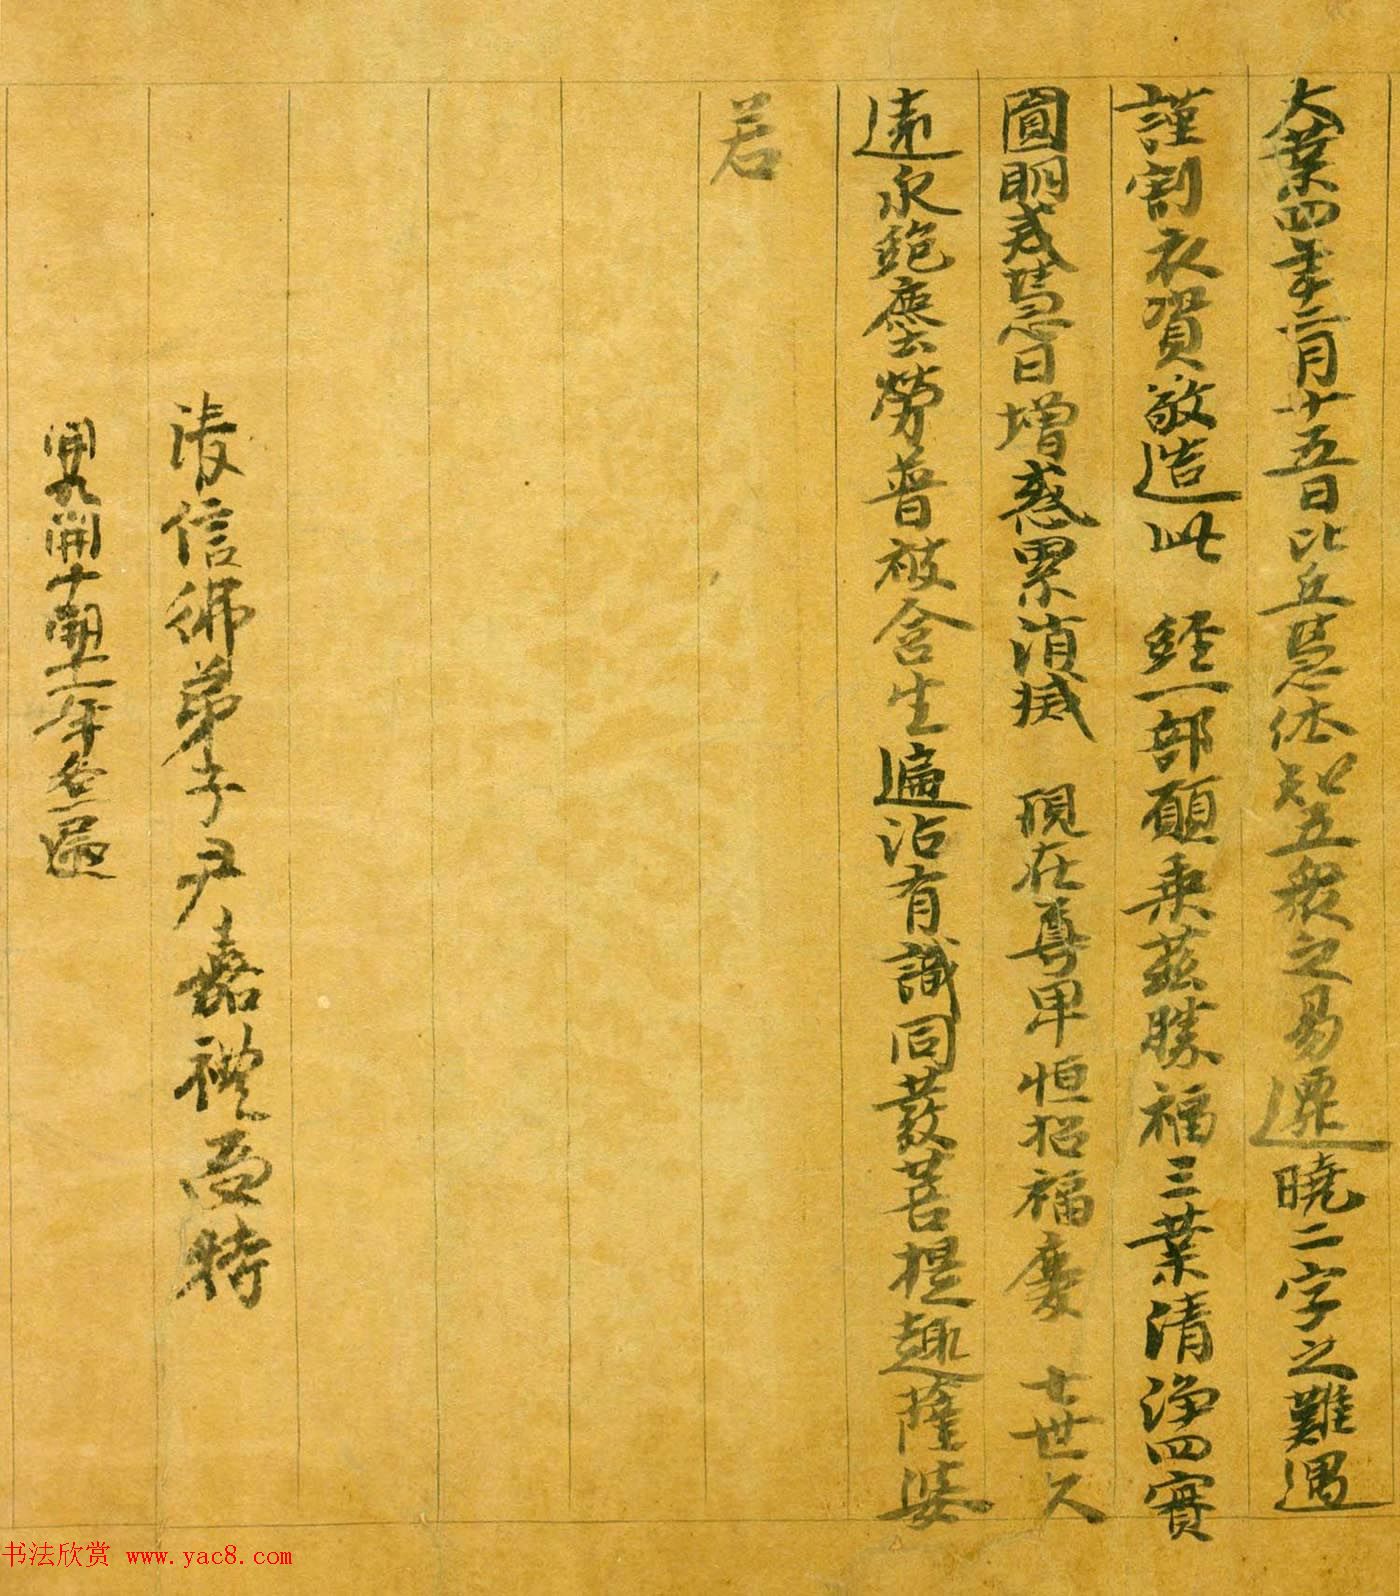 大業四年二月十五日比丘慧休知五衆之易遷曉二字之難遇
謹割衣資敬造此 經一部願乘茲勝福三業清淨四實
圓明戒慧日增惑累消滅 現在尊卑恒招福慶 七世久
遠永絕塵勞普被含生遍沾有識同發菩提趣薩婆
若
清信佛弟子尹嘉禮受持
開九開十開十一年各一遍
书法欣赏 www.yac8.com